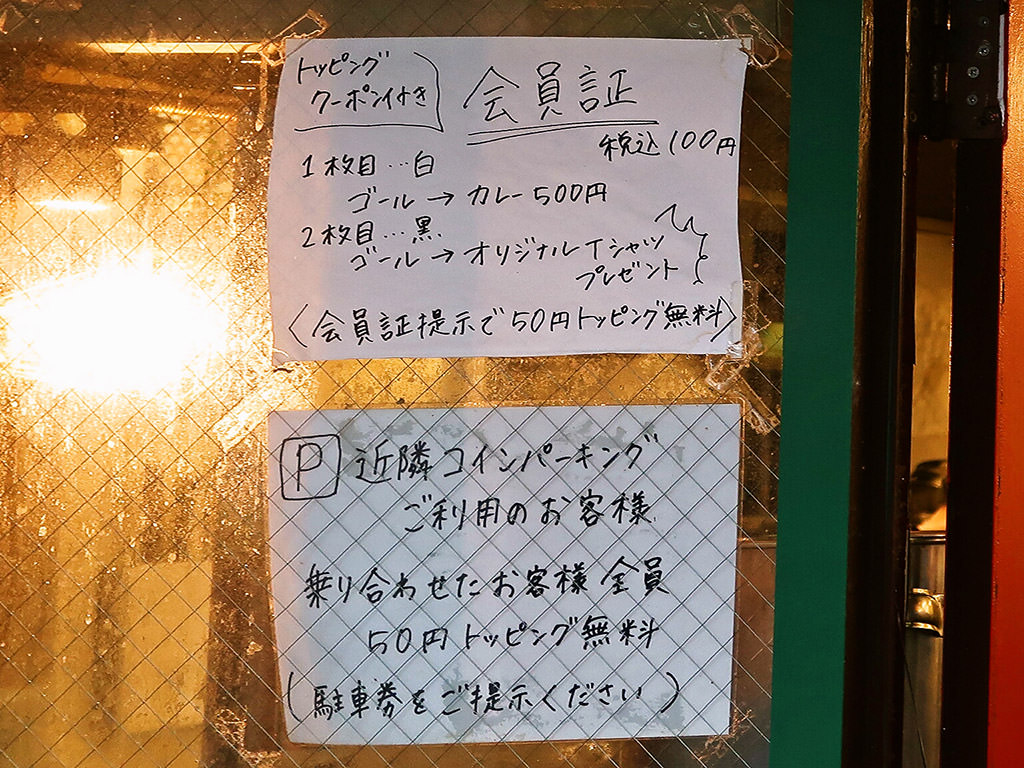 トッピング
クーポン付き
会員証
税込100円
1枚目…白
ゴール→カレー500円
2枚目…黒
ゴール→オリジナルTシャツ
プレゼント
〈会員証提示で50円トッピング無料〉
P 近隣コインパーキング
ご利用のお客様
乗り合わせたお客様全員
50円トッピング無料
(駐車券をご提示ください)